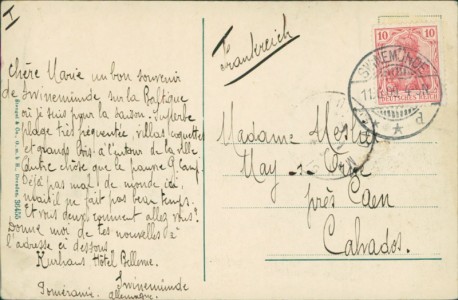 I
Frankreich
10 10
SWINEMÜNDE
DEUTSCHES REICH
* * d
Chère Marie un bon souvenir
de Swinemünde sur la Baltique
où je suis pour la saison. Superbe
plage très fréquentée, villas coquettes
et grands bois à l'entour de la ville
autre chose que ce pauvre
Déjà pas mal de monde ici,
mais il ne fait pas beau temps.
Et vous deux comment allez vous?
Donne moi de tes nouvelles à
l'adresse ci dessous.
Kurhaus Hôtel Bellevue.
Swinemünde
Poméranie. Allemagne.
Madame
May-sur-Orne
près Caen
Calvados.